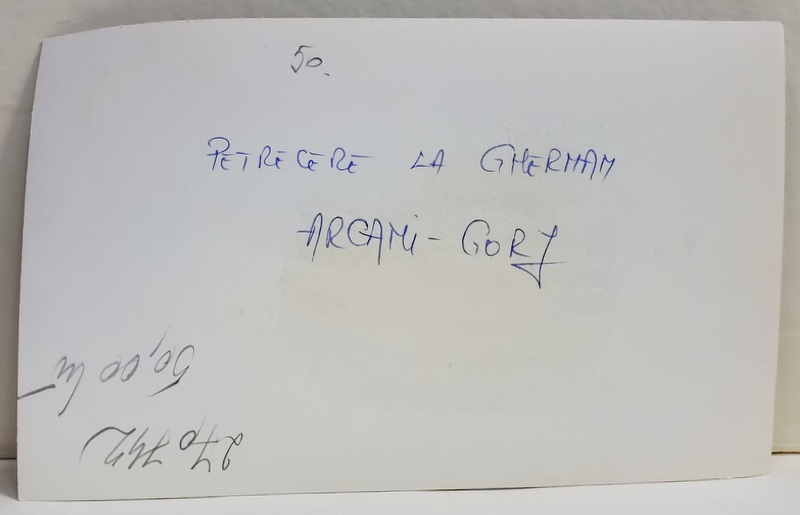 50.
PETRECERE LA GHERMAN
ARCANI - GORJ
50,00 lei
270742